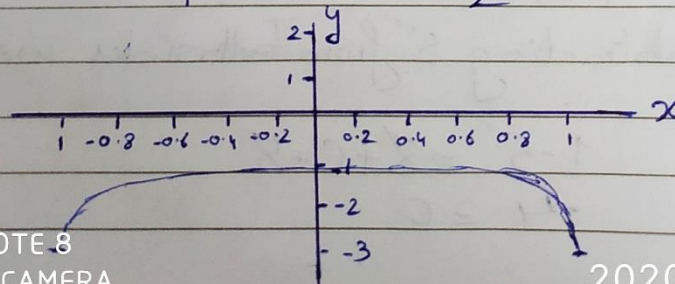 y
2
1
x
1 -0.8 -0.6 -0.4 -0.2 0.2 0.4 0.6 0.8 1
-1
-2
-3
OTE 8
CAMERA
2020